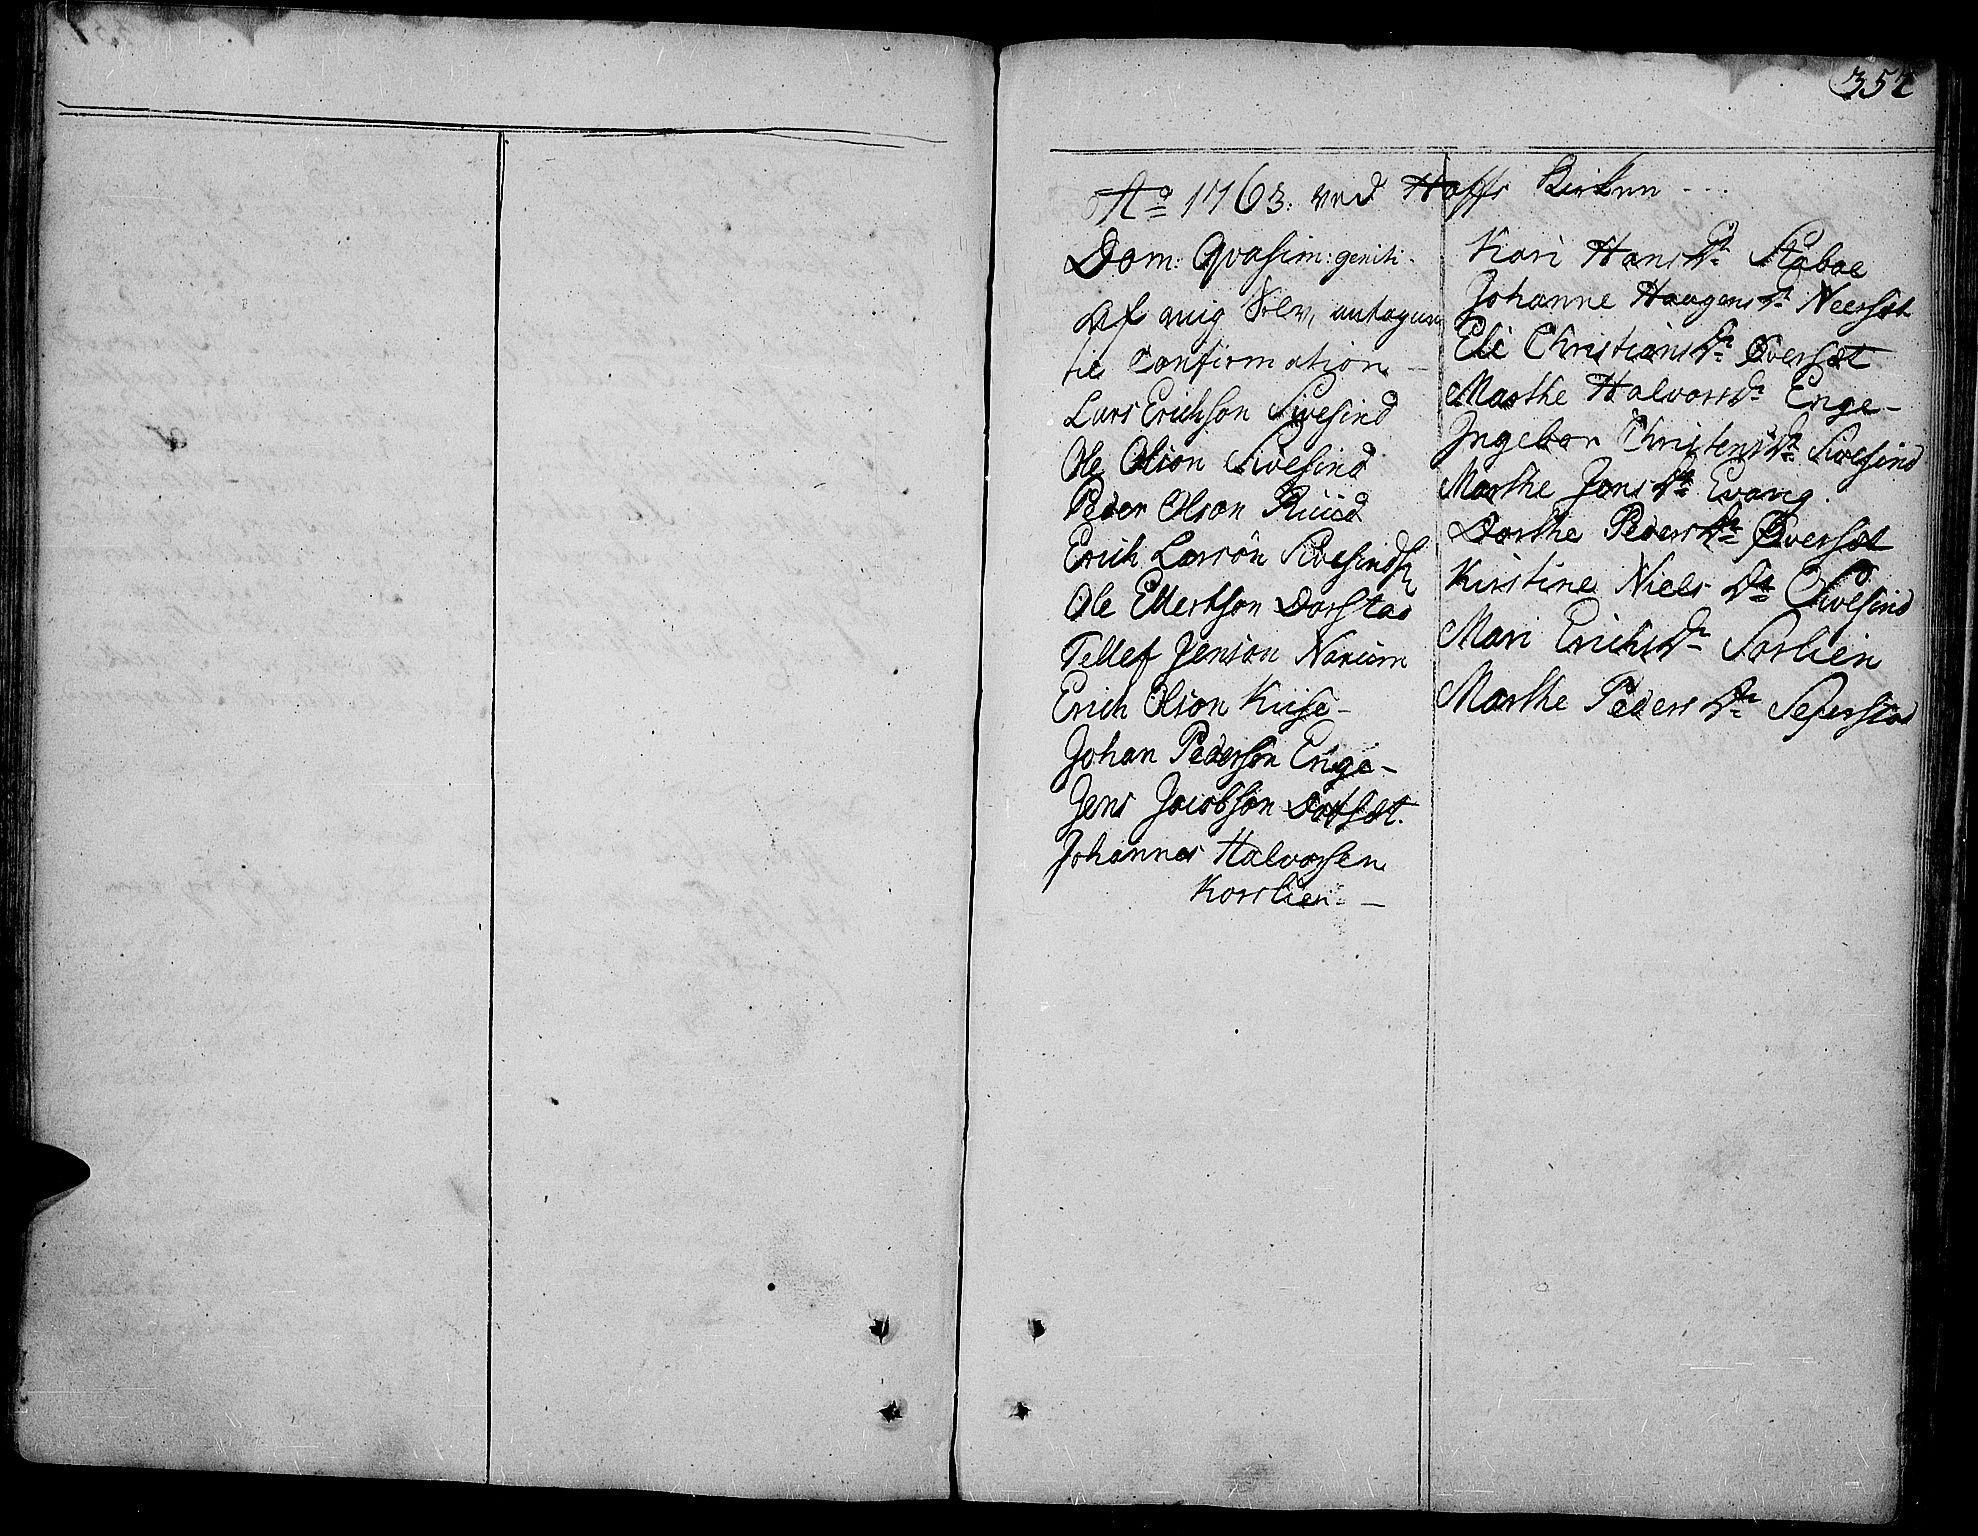 352
Ao 1763. ved Hoffs Kirken
Dom: Qvasim: geniti
Af mig antagen
til Confirmation
Lars Erichson Sivesind
Ole Olson Sivesind
Peder Olson Ruud
Erich Larson
Ole Ellertson Dorstad
Tellef Jenson Narum
Erich Olson Kiise
Johan Pederson Enge
Jens Jacobson
Johannes Halvorsen
Korslien
Kari Hans Dr Staboe
Johanne Haagens Dr Neerset
Eli Christians Dr Øverset
Marthe Halvors Dr Enge
Ingebor Christens Dr Sivesind
Marthe Jons Dr Evang
Dorthe Peders Dr Øverset
Kirstine Niels Dr Sivesind
Mari Erichs Dr Sorlien
Marthe Peders Dr Seierstad